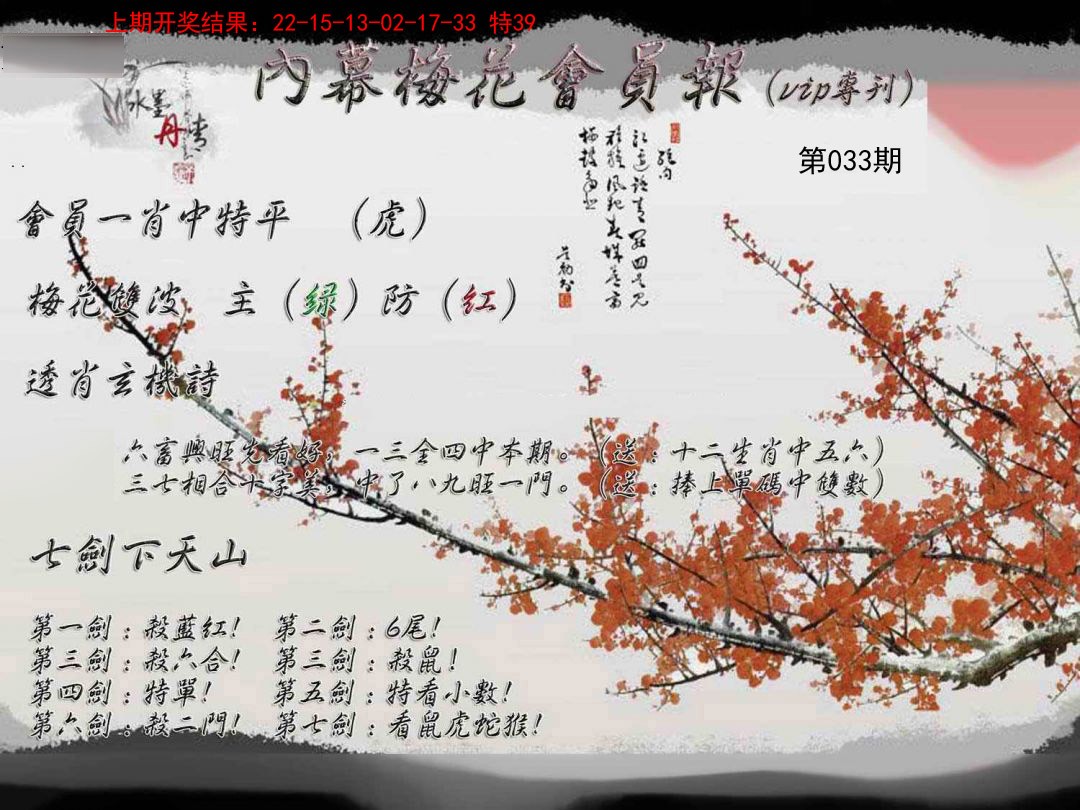 上期开奖结果：22-15-13-02-17-33 特39
內幕梅花會員報（vip專刊）
水墨
丹情
第033期
會員一肖中特平 （虎）
梅花雙波 主（绿）防（红）
透肖玄機詩
六畜興旺先看好，一三全四中本期。（送：十二生肖中五六）
三七相合十字美，中了八九旺一門。（送：捧上單碼中雙數）
七劍下天山
第一劍：殺藍紅！ 第二劍：6尾！
第三劍：殺六合！ 第三劍：殺鼠！
第四劍：特單！ 第五劍：特看小數！
第六劍：殺二門！ 第七劍：看鼠虎蛇猴！